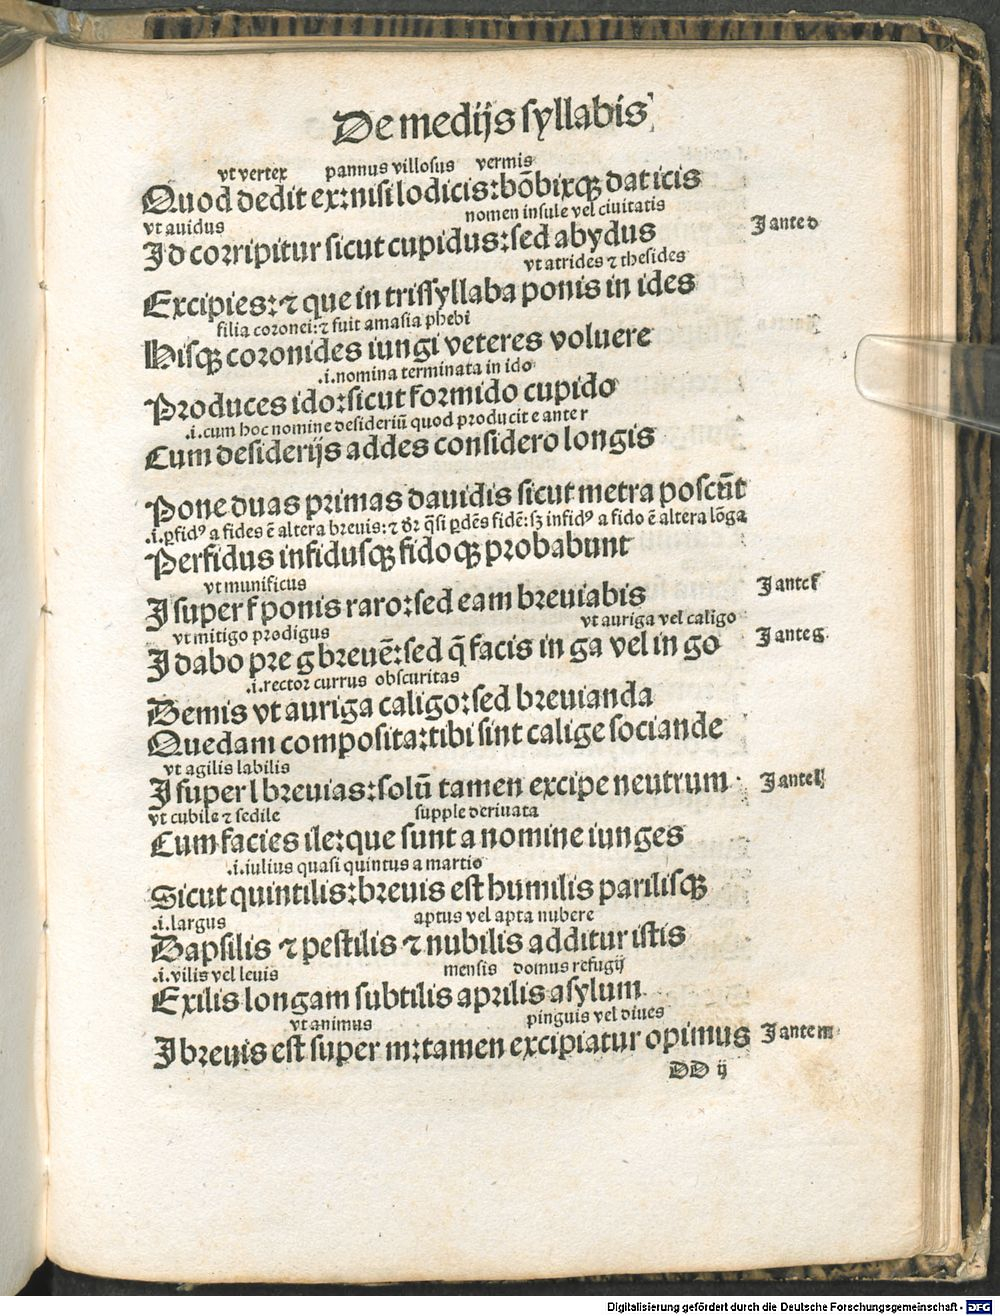 De medijs syllabis
vt vertex pannus villosus vermis
Quod dedit ex: nisi lodicis: bõbixqꝫ dat icis
nomen insule vel ciuitatis
vt auidus
I d corripitur sicut cupidus: sed abydus
I ante d
vt atrides ⁊ thesides
Excipies: ⁊ que in trissyllaba ponis in ides
filia coronei: ⁊ fuit amasia phebi
Hisqꝫ coronides iungi veteres voluere
.i. nomina terminata in ido
Produces ido: sicut formido cupido
.i. cum hoc nomine desideriũ quod producit e ante r
Cum desiderijs addes considero longis
Pone duas primas dauidis sicut metra poscũt
.i. ꝑfidꝰ a fides ē altera breuis: ⁊ dr̄ q̄si ꝑdẽs fidẽ: sꝫ infidꝰ a fido ē altera lõga
Perfidus infidusqꝫ fidoqꝫ probabunt
vt munificus
I super f ponis raro: sed eam breuiabis
I ante f
vt auriga vel caligo
vt mitigo prodigus
I dabo pre g breuē: sed q̄ facis in ga vel in go
I ante g
.i. rector currus obscuritas
Demis vt auriga caligo: sed breuianda
Quedam composita: tibi sint calige sociande
vt agilis labilis
I super l breuias: solũ tamen excipe neutrum
I ante l
vt cubile ⁊ sedile supple deriuata
Cum facies ile: que sunt a nomine iunges
.i. iulius quasi quintus a martio
Sicut quintilis: breuis est humilis parilisqꝫ
.i. largus aptus vel apta nubere
Dapsilis ⁊ pestilis ⁊ nubilis additur istis
.i. vilis vel leuis mensis domus refugij
Exilis longam subtilis aprilis asylum
vt animus pinguis vel diues
I breuis est super m: tamen excipiatur opimus
I ante m
DD ij
Digitalisierung gefördert durch die Deutsche Forschungsgemeinschaft - DFG